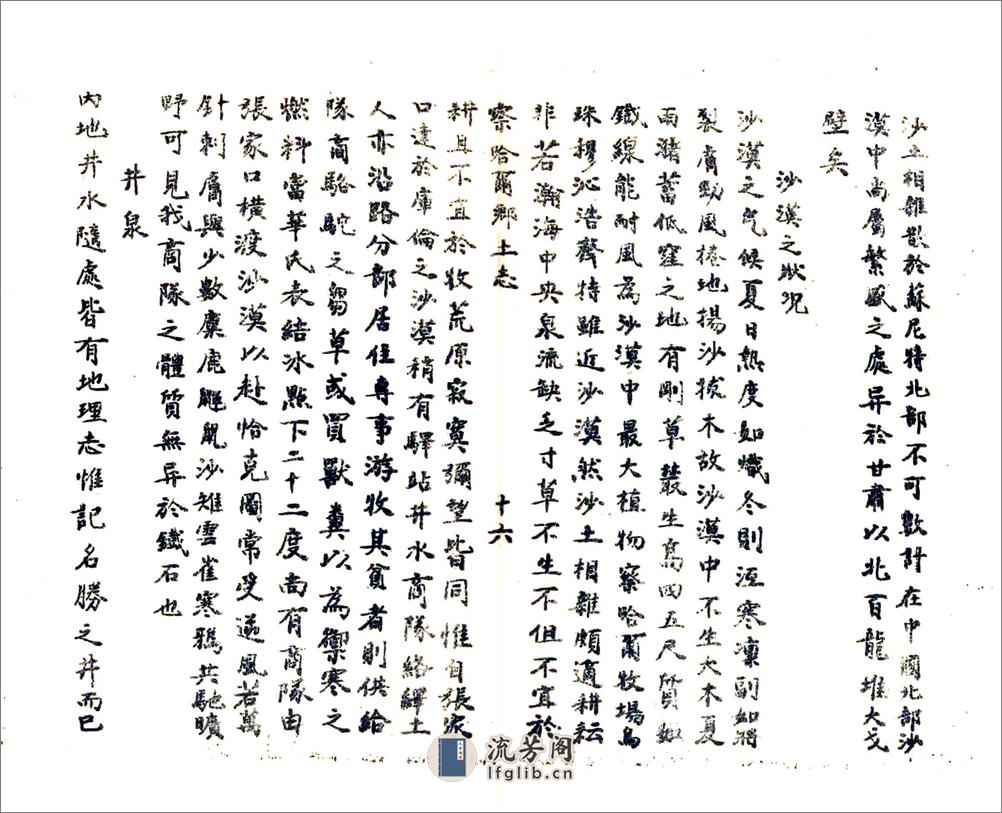 沙土相雜散於蘇尼特北部不可數計在中國北部沙
漠中尚屬繁盛之處异於甘肅以北百龍堆大戈
壁矣
沙漠之狀况
沙漠之气候夏日熱度如熾冬則沍寒凜冽如將
裂膚勁風捲地揚沙拔木故沙漠中不生大木夏
雨瀦蓄低窪之地有剛草叢生高四五尺質如
鐵線能耐風為沙漠中最大植物察哈爾牧場烏
珠穆沁浩齊特雖近沙漠然沙土相雜頗適耕耘
非若瀚海中央泉流缺乏寸草不生不但不宜於
察哈爾鄉土志
十六
耕且不宜於牧荒原寂寞彌望皆同惟自張家
口達於庫倫之沙漠稍有驛站井水商隊絡繹土
人亦沿路分部居住專事游牧其貧者則供給
隊商駱駝之芻草或買獸糞以為禦寒之
燃料當華氏表結冰點下二十二度尚有商隊由
張家口橫渡沙漠以赴恰克圖常受逆風若萬
針刺膚與少數麋鹿鼯鼠沙雉雲雀寒鴉共馳曠
野可見我商隊之體質無异於鐵石也
井泉
內地井水隨處皆有地理志惟記名勝之井而已
流芳阁
lfglib.cn